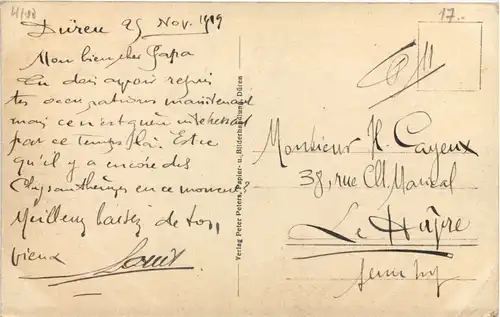 4/18
17.-
Düren 25 Nov. 1919
Mon bien cher Papa
Tu dois avoir repris
tes occupations maintenant
mais ce n'est guère intéressant
par ce temps là. Est ce
qu'il y a encore des
Chrysanthèmes en ce moment?
Meilleurs baisers de ton
vieux
Louis
Verlag Peter Peters, Papier- u. Bilderhandlung, Düren
Monsieur H. Cayeux
38, rue Ch. Marical
Le Hâvre